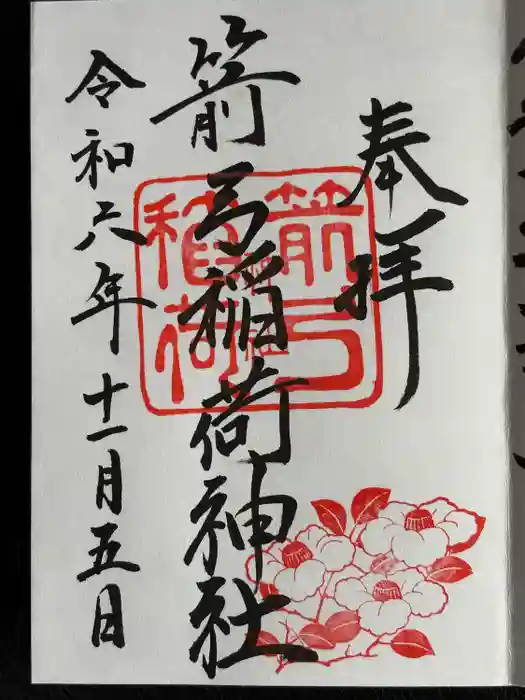 奉拝
箭弓稲荷神社
箭弓
稲荷
神社
令和六年十一月五日